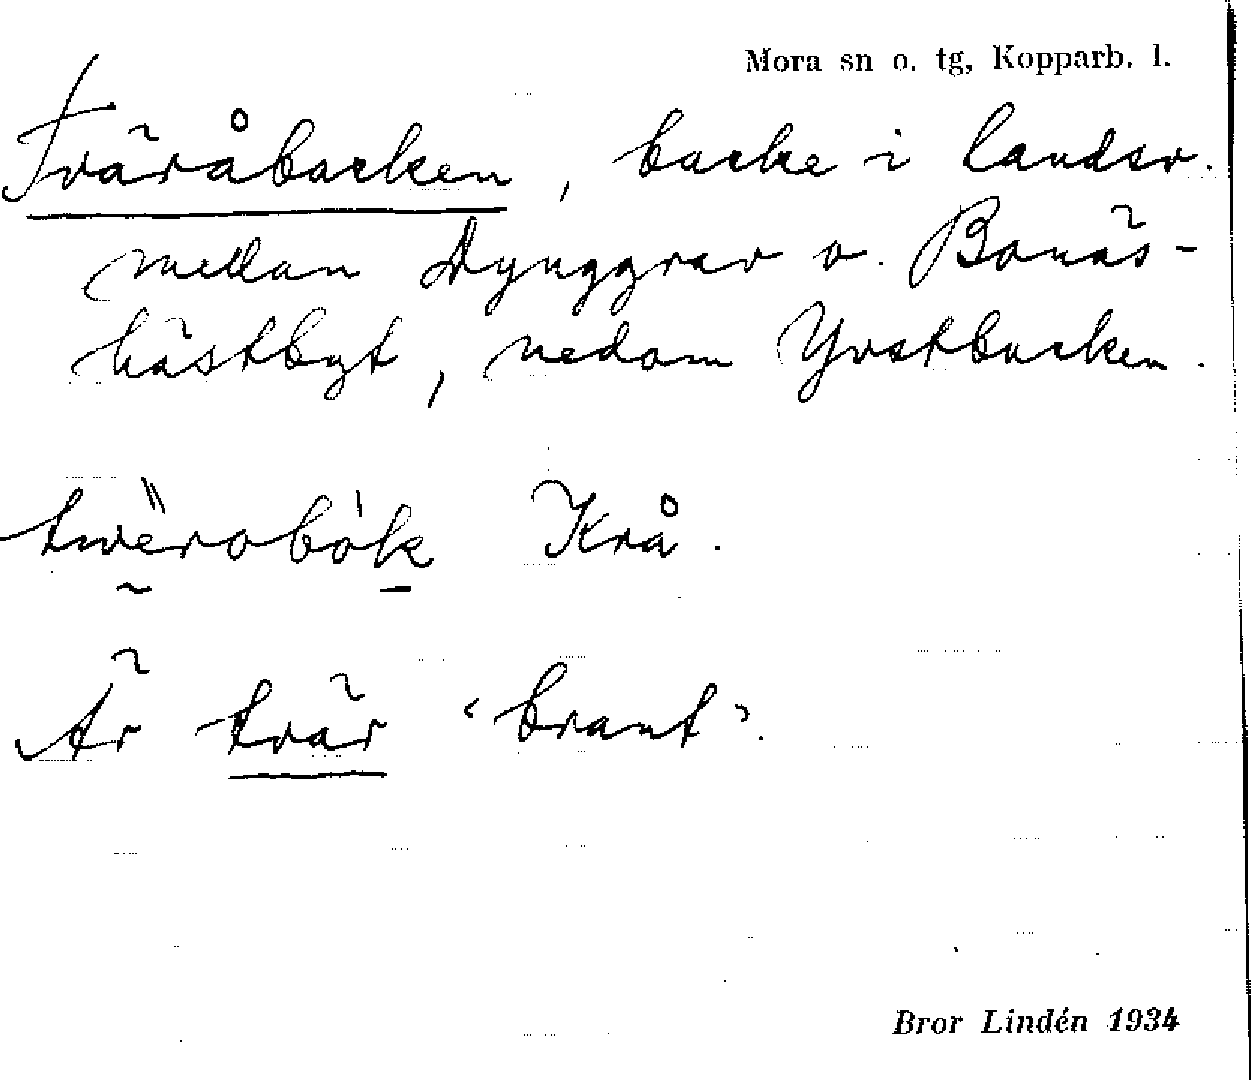 Mora sn o. tg, Kopparb. l.
Tväråbacken, backe i landsv.
mellan Dynggrav o. Bonäs-
hästbyt, nedom Yvstbacken.
twërobók Krå.
Är tvär 'brant'.
Bror Lindén 1934